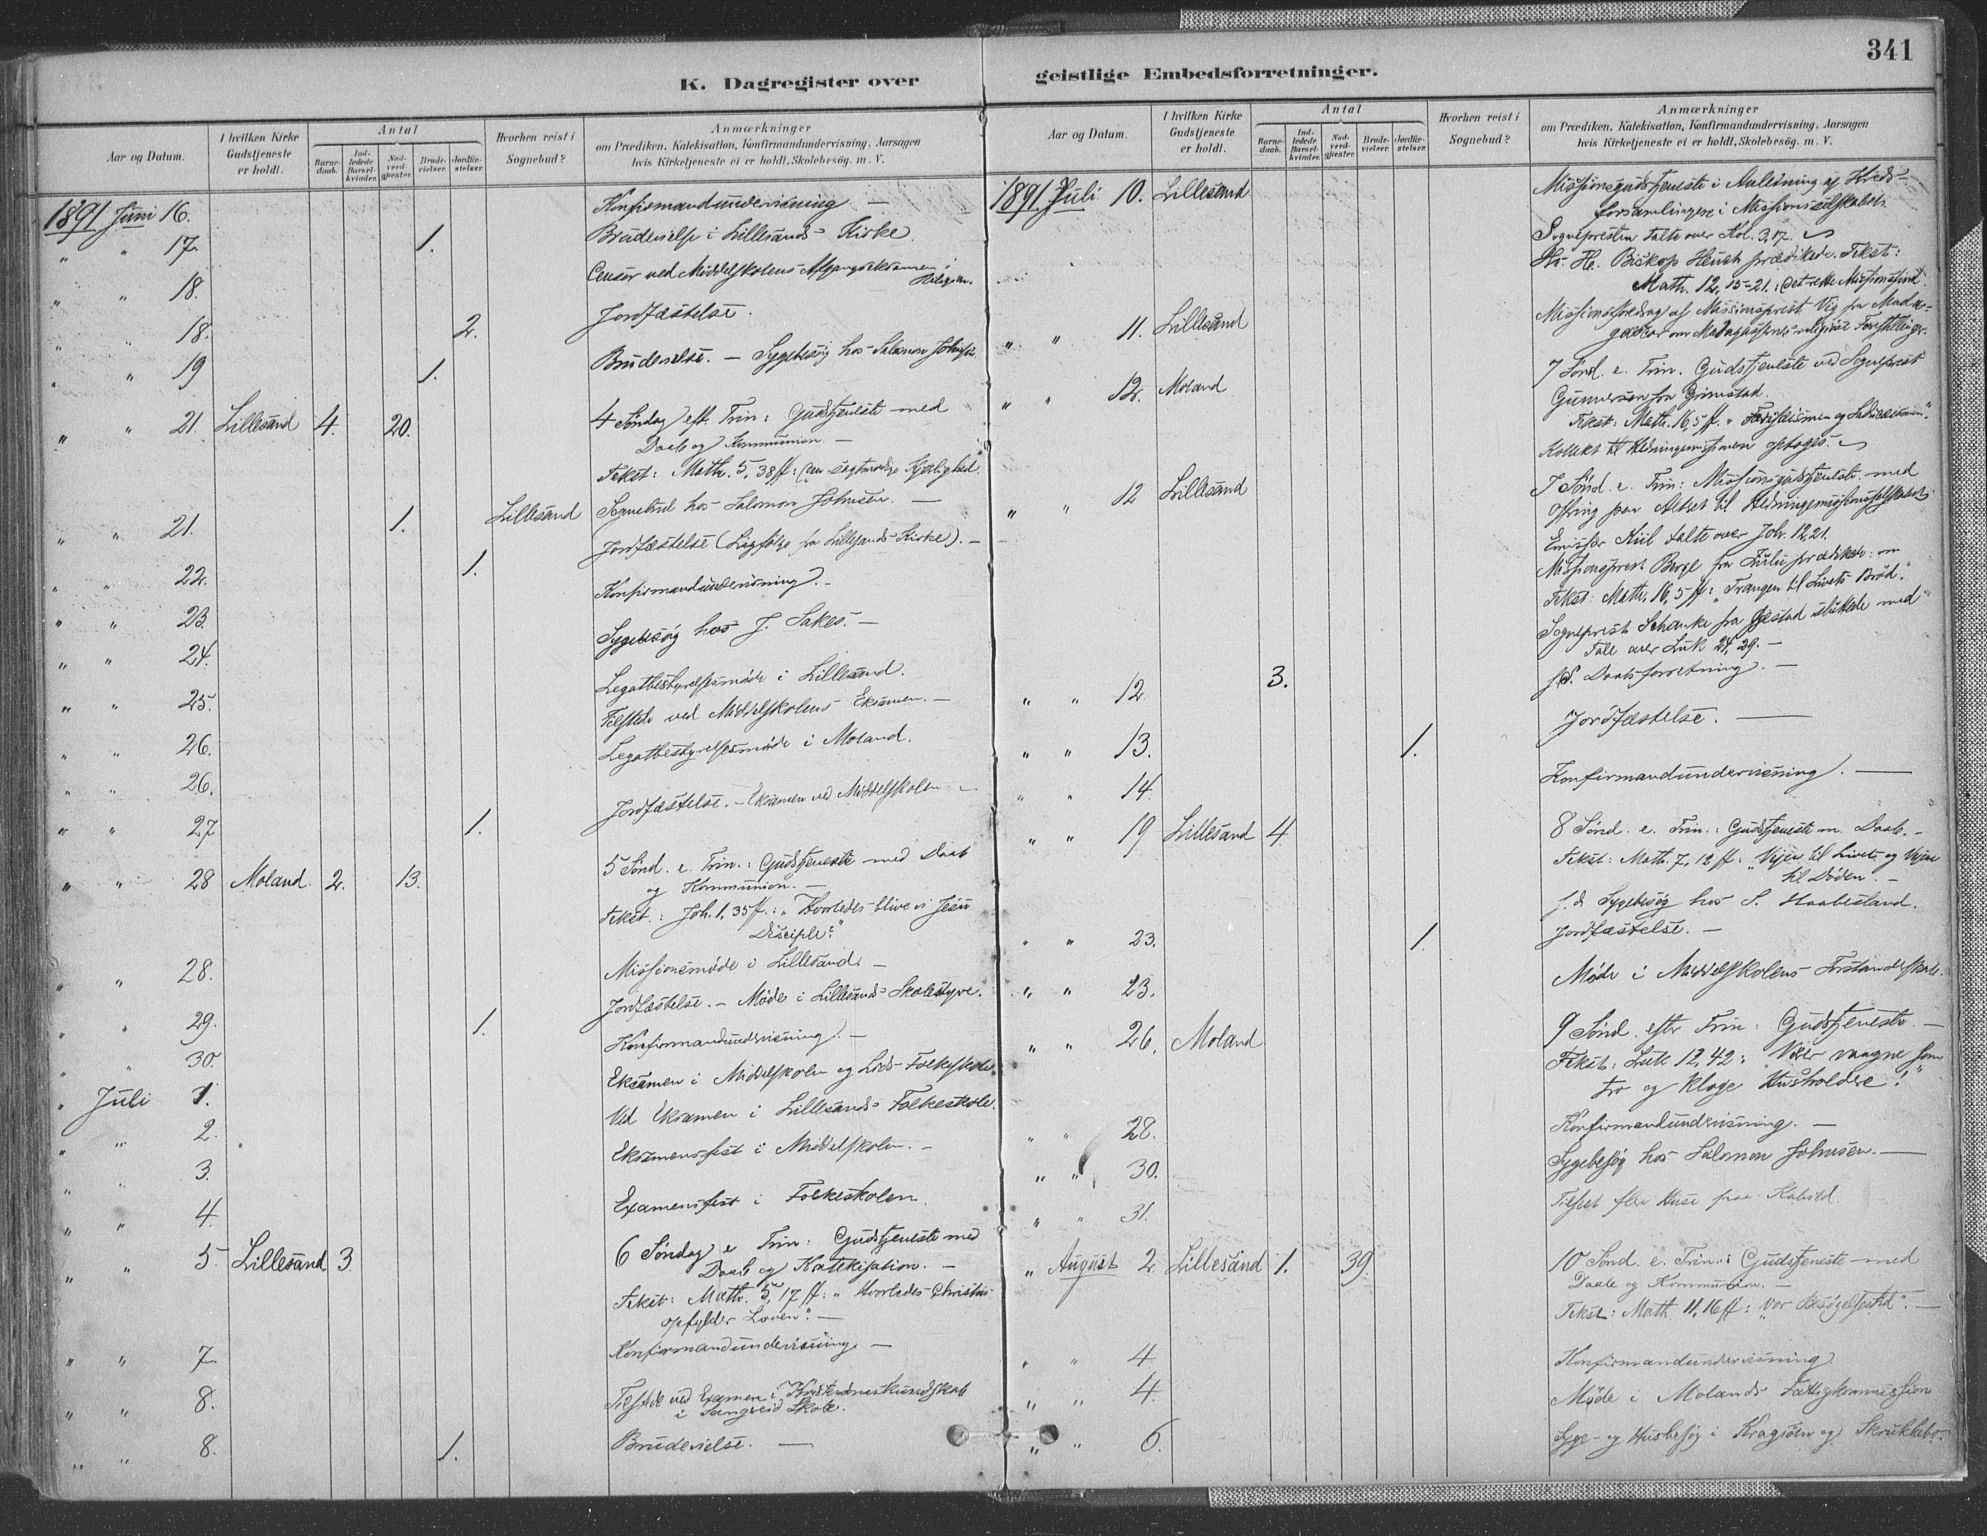 341
K. Dagregister over geistlige Embedsforretninger.
Aar og Datum.
I hvilken Kirke Gudstjeneste er holdt.
Antal
Barne-daab.
Ind-ledede Barsel-kvinder.
Nad-verd-gjester.
Brude-vielser.
Jordfæ-stelser.
Hvorhen reist i Sognebud?
Anmærkninger
om Prædiken, Katekisation, Konfirmandundervisning, Aarsagen
hvis Kirketjeneste ei er holdt, Skolebesøg. m. V.
1891 Juni 16. Konfirmandundervisning —
" " 17. 1. Brudevielse i Lillesands Kirke
" " 18. Censor ved Middelskolens Afgangseksamen i Religion.
" " 18. 2. Jordfæstelse.
" " 19 1. Brudevielse. — Sygebesøg hos Salomon Johnsen.
" " 21. Lillesand 4. 20. 4 Søndag eft. Trin: Gudstjeneste med
Daab og Kommunion. —
Tekst: Math. 5, 38 ff: Den sagtmodige Kjærlighed"
" " 21. 1. Lillesand Sognebud hos Salomon Johnsen. —
" " 22. 1. Jordfæstelse (Ligfølge fra Lillesands Kirke). —
" " 23. Konfirmandundervisning. —
" " 24. Sygebesøg hos J. Sakes. —
" " 25. Legatbestyrelsesmøde i Lillesand.
" " 26. Tilstede ved Middelskolens Eksamen. —
" " 26. Legatbestyrelsesmøde i Moland.
" " 27 1. Jordfæstelse. — Eksamen ved Middelskolen —
" " 28 Moland. 2. 13. 5 Sønd. e. Trin.: Gudstjeneste med Daab
og Kommunion. —
Tekst.: Joh. 1, 35 ff.: "Hvorledes blive vi Jesu
Disciple?"
" " 28. Missionsmøde i Lillesand. —
" " 29. 1. Jordfæstelse. — Møde i Lillesands Skolestyre.
" " 30. Konfirmandundervisning. —
" Juli 1. Eksamen i Middelskolen og Folkeskole
" " 2. Ved Eksamen i Lillesands Folkeskole.
" " 3. Eksamensfest i Middelskolen. —
" " 4. Examensfest i Folkeskolen.
" " 5 Lillesand 3. 6 Søndag e Trin: Gudstjeneste med
Daab og Katekisation. —
Tekst: Math. 5, 17 ff: "Hvorledes Christus
opfylder Loven". —
" " 7. Konfirmandundervisning —
" " 8. Tilstede ved Examen i Kristendomskundskab
i Skole.
" " 8. 1. Brudevielse. —
Aar og Datum.
I hvilken Kirke Gudstjeneste er holdt.
Antal
Barne-daab.
Ind-ledede Barsel-kvinder.
Nad-verd-gjester.
Brude-vielser.
Jordfæ-stelser.
Hvorhen reist i Sognebud?
Anmærkninger
om Prædiken, Katekisation, Konfirmandundervisning, Aarsagen
hvis Kirketjeneste ei er holdt, Skolebesøg. m. V.
1891 Juli 10. Lillesand Missionsgudstjeneste i Anledning af Kreds-
forsamlingen i Missionsselskabet.
Sognepresten talte over Kol. 3, 17.
Hr. Biskop Heuch prædikede. Tekst:
Math. 12, 15-21: Det rette Missionssind.
" " 11. Lillesand Missionsforedrag af Missionsprest Vig fra Mada-
gaskar om Madagassernes religiøse Forestillinger.
" " 12. Moland 7 Sønd. e. Trin. Gudstjeneste ved Sogneprest
Gunnersen fra Grimstad.
Tekst: Math. 16, 5 ff. "Farisæismen og Sadducæismen".
Kollekt til Hedningemissionen optoges.
" " 12 Lillesand 7 Sønd. e. Trin: Missionsgudstjeneste med
Ofring paa Altret til Hedningemissionsselskabet.
Emissær Kiil talte over Joh. 12, 21.
Missionsprest Berge fra Zulu prædikede om
Tekst: Math. 16, 5 ff: "Trangen til Livets Brød".
Sogneprest Schanke fra sluttede med
Tale over Luk 24, 29. —
" " 12 3. Daabsforretning. —
" " 13. 1. Jordfæstelse. —
" " 14. Konfirmandundervisning. —
" " 19 Lillesand 4. 8 Sønd. e. Trin.: Gudstjeneste m. Daab. —
Tekst: Math. 7, 13 ff: "Vejen til Livet og Vejen
til Døden. —
s. d. Sygebesøg hos S. Haabesland.
" " 23. 1. Jordfæstelse. —
" " 23. Møde i Middelskolens Forstanderskab.
" " 26. Moland 9 Sønd. efter Trin: Gudstjeneste. —
Tekst: Luk 12, 42: "Vær vaagne som
tro og kloge Husholdere!"
" " 28. Konfirmandundervisning. —
" " 30. Sygebesøg hos Salomon Johnsen. —
" " 31. Tilset flere Huse paa
" August 2 Lillesand 1. 39. 10 Sønd. e. Trin: Gudstjeneste med
Daab og Kommunion. —
Tekst: Math 11, 16 ff: "Vor Besøgelsestid". —
" " 4 Konfirmandundervisning
" " 4. Møde i Molands Fattigkommission
" " 6. Syge- og Husbesøg i Kragsøen og